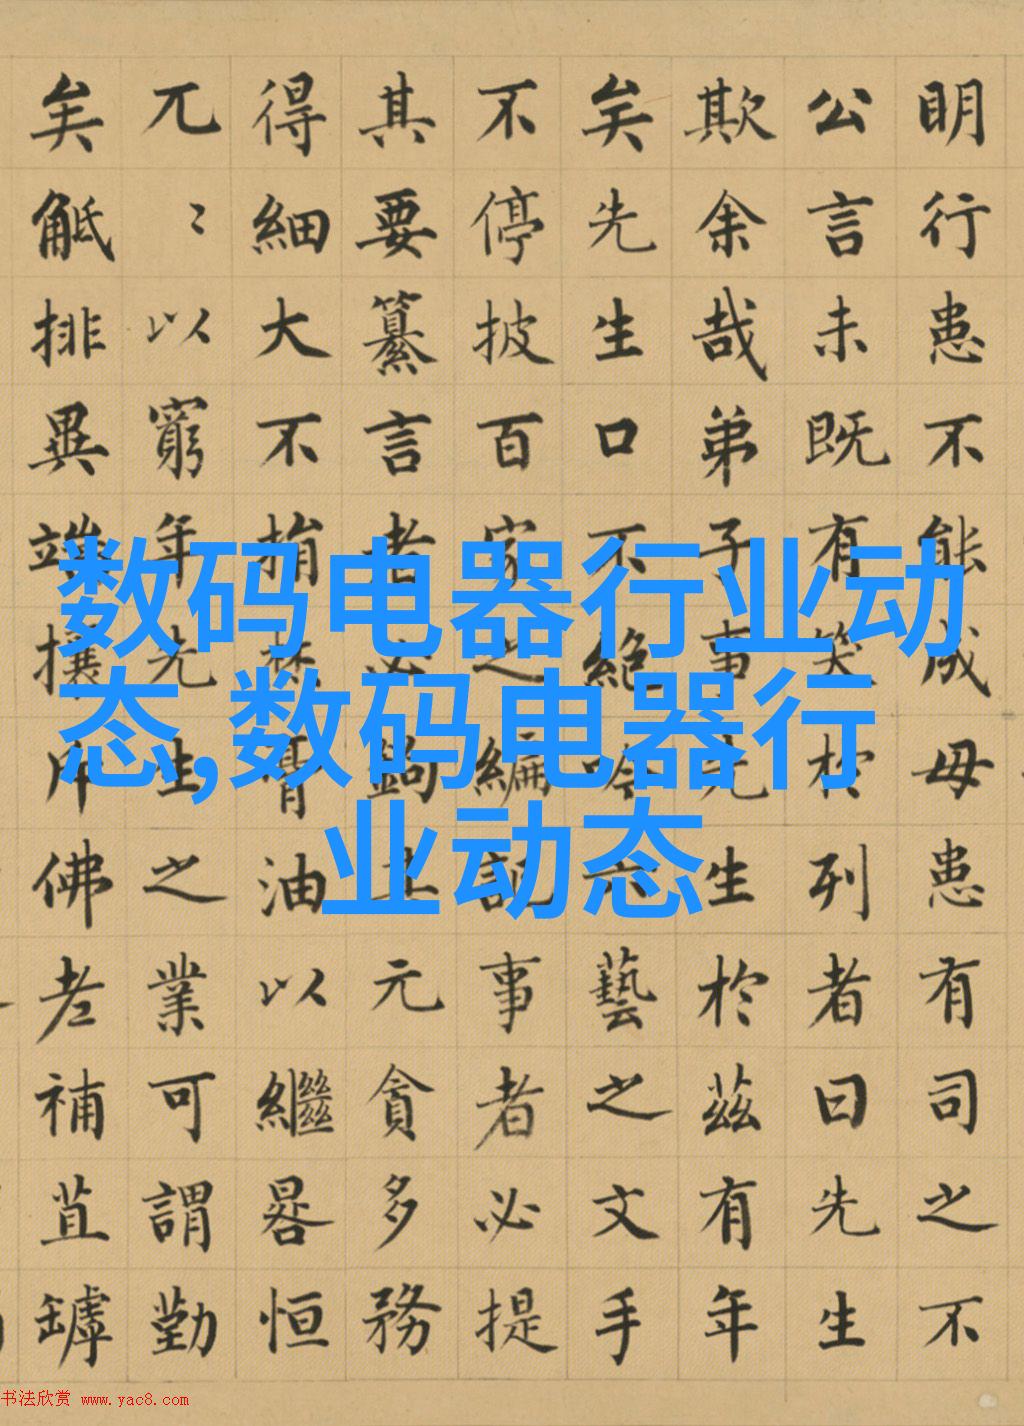 明行患不能成毋患有司之不
公言未既有笑於列者曰先生
欺余哉弟子事先生於茲有年
矣先生口不絕吟六藝之文手
不停披百家之編記事者必提
其要纂言者必鉤其元貪多務
得細大不捐焚膏油以繼晷恒
兀〻以窮年先生之業可謂勤
矣觝排異端攘斥佛老補苴罅
数码电器行业动
态,数码电器行
业动态
书法欣赏 www.yac8.com